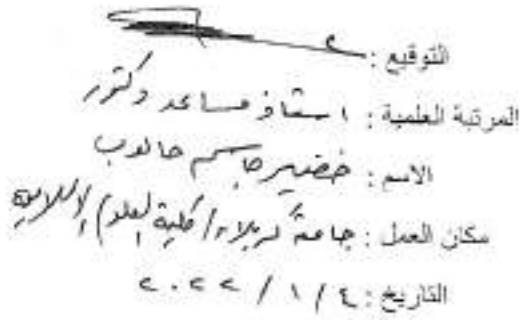 التوقيع :
المرتبة العلمية : استاذ مساعد دكتور
الاسم : خضير جاسم حالوب
مكان العمل : جامعة كربلاء / كلية العلوم الاسلامية
التاريخ : ٤ / ١ / ٢٠٢٢